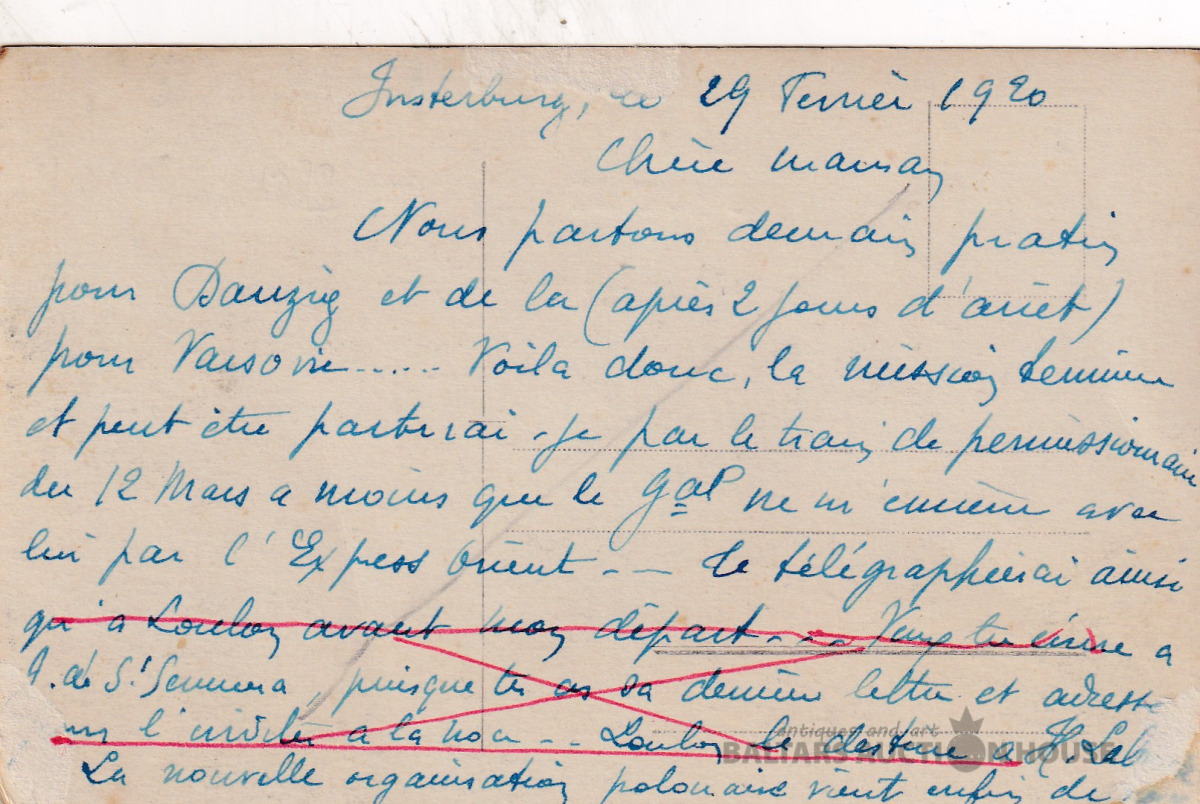 Insterburg, le 29 Février 1920
Chère maman
Nous partons demain matin
pour Danzig et de la (après 2 jours d'arrêt)
pour Varsovie...... Voila donc, la mission terminée
et peut être partirai-je par le train de permissionnaire
du 12 Mars a moins que le Gal ne m'emmène avec
lui par l'Express Orient -- Je télégraphierai ainsi
qu'a Loulou avant mon départ... tu écrire a
J. de St Sernin, puisque tu as sa dernière lettre et adresse
l'inviter a la noce -- Loulou le destine a
La nouvelle organisation polonaise vient enfin de
antiques and art
BALTARS AUCTION HOUSE